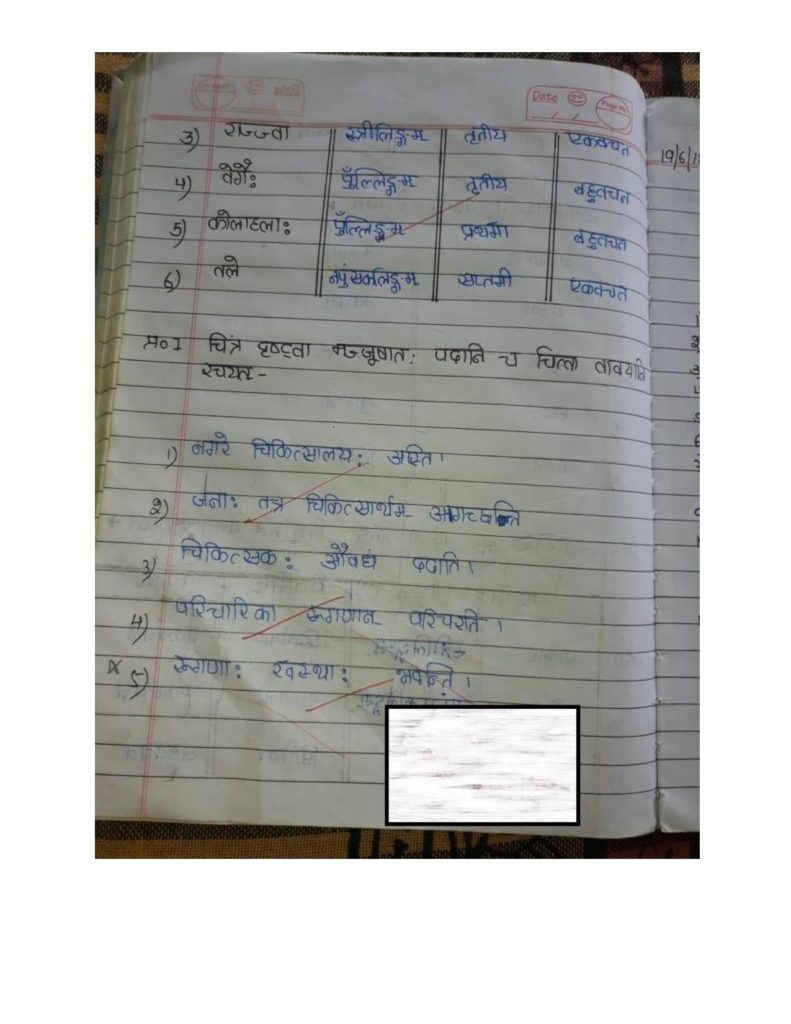 Date
Page No.
19/6/1
3) राज्ज्वा स्त्रीलिङ्गम् तृतीय एकवचत
4) वेगैः पुँल्लिङ्गम् तृतीय बहुवचत
5) कोलाहलाः पुँल्लिङ्गम् प्रथमा बहुवचत
6) तले नपुंसकलिङ्गम् सप्तमी एकवचत
चित्रं दृष्ट्वा मञ्जूषातः पदानि च चित्वा वाक्यानि
रचयत-
1) नगरे चिकित्सालयः अस्ति।
2) जनाः तत्र चिकित्सार्थम् आगच्छन्ति
3) चिकित्सकः औषधं ददाति।
4) परिचारिका रूगणान् परिचरति।
x 5) रूगणाः स्वस्थाः भवन्ति।